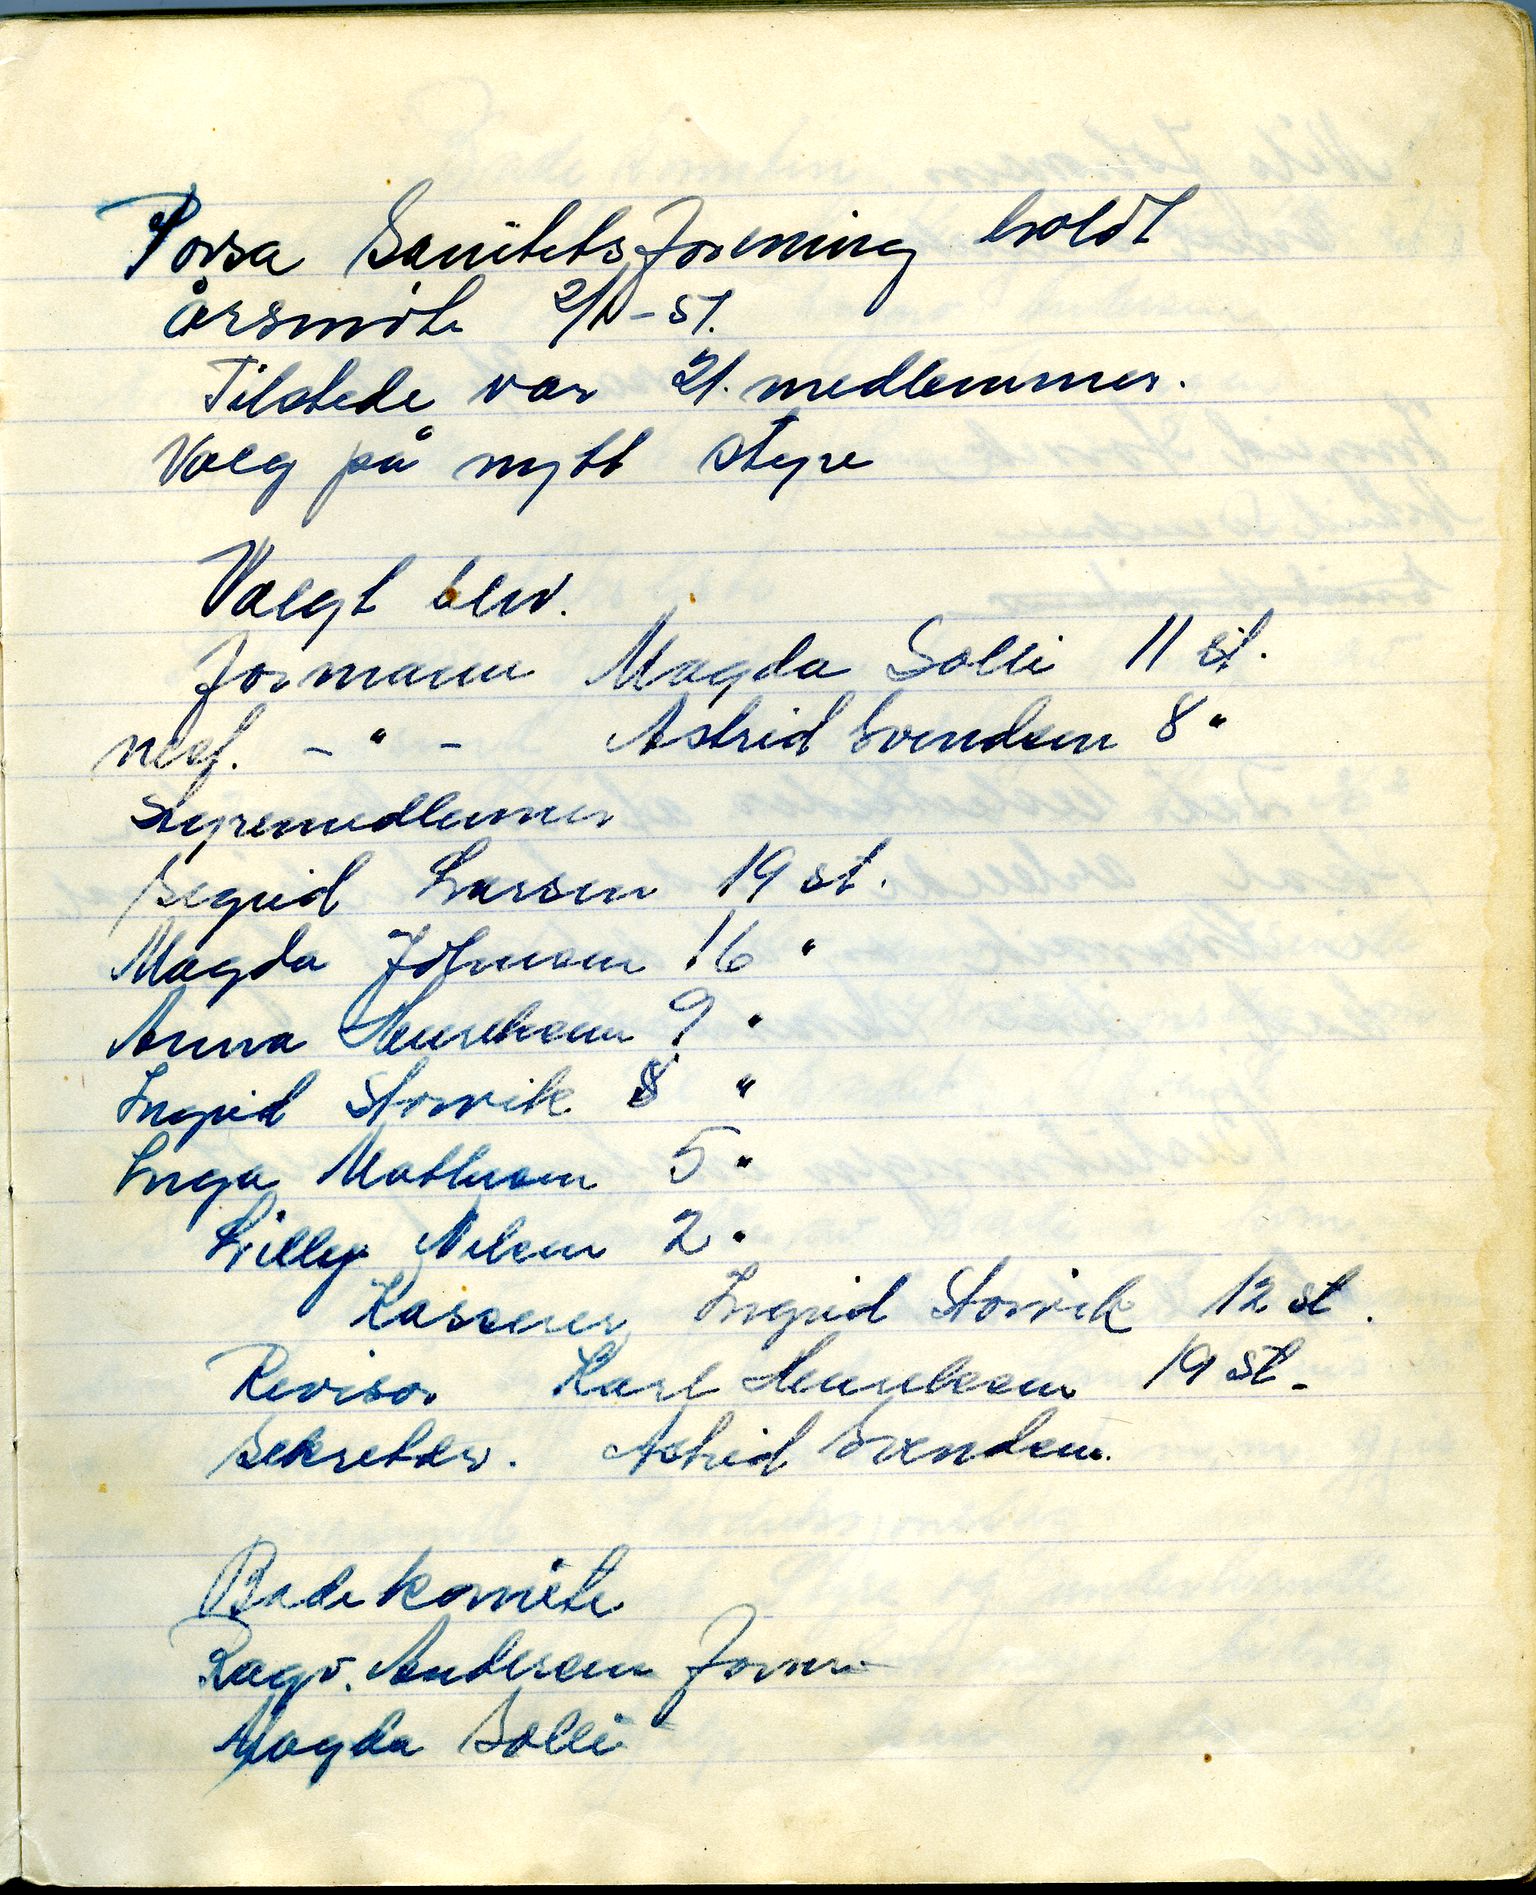 Porsa Sanitetsforening holdt
årsmöte 2/1-51.
Tilstede var 21. medlemmer.
Valg på nytt styre
Valgt blev.
Formann Magda Solli 11 st.
nestf. - " - Astrid Svendsen 8 "
Styremedlemmer
Sigrid Larsen 19 st.
Magda Johnsen 16 "
Anna Henriksen 9 "
Ingrid Storvik 8 "
Inga Mathisen 5 "
Lilly Nilsen 2 "
Kasserer Ingrid Storvik 12 st.
Revisor Karl Henriksen 19 st.
Sekretær. Astrid Svendsen.
Badekomite
Ragv. Andersen
Magda Solli